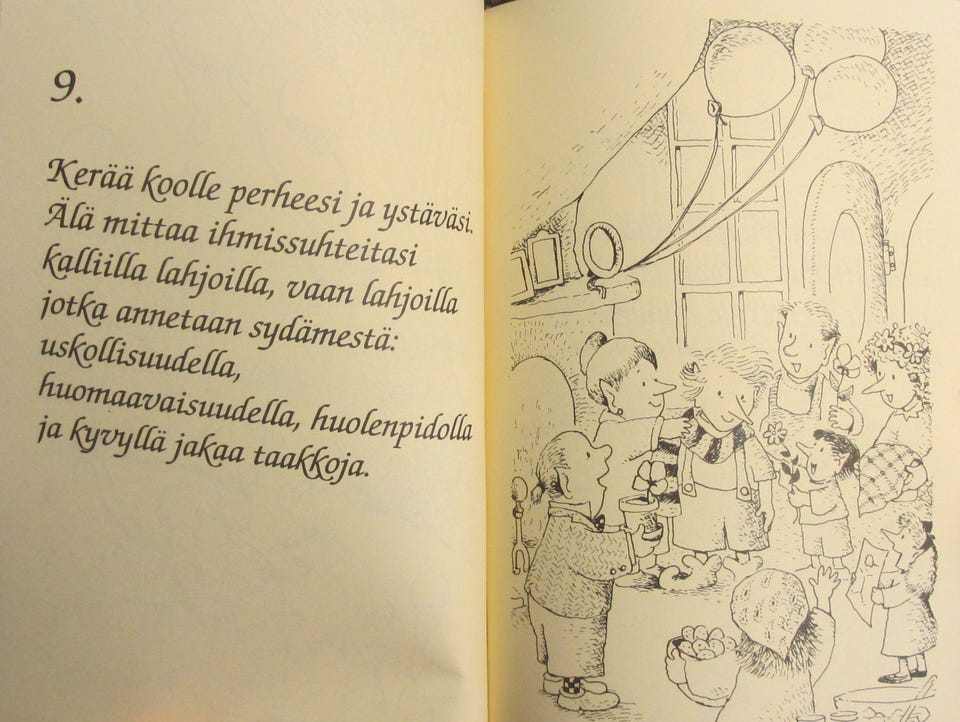 9.
Kerää koolle perheesi ja ystäväsi.
Älä mittaa ihmissuhteitasi
kalliilla lahjoilla, vaan lahjoilla
jotka annetaan sydämestä:
uskollisuudella,
huomaavaisuudella, huolenpidolla
ja kyvyllä jakaa taakkoja.